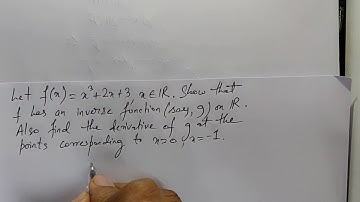 Let f(x) = x³+2x+3, x∈ℝ. Show that
f has an inverse function (say, g) on ℝ.
Also find the derivative of g at the
points corresponding to x=0, x=-1.